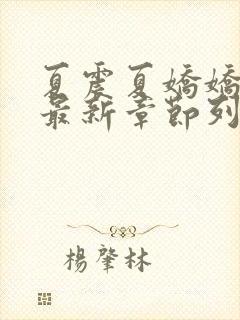 夏震夏嬌嬌
最新章節列
楊肇林